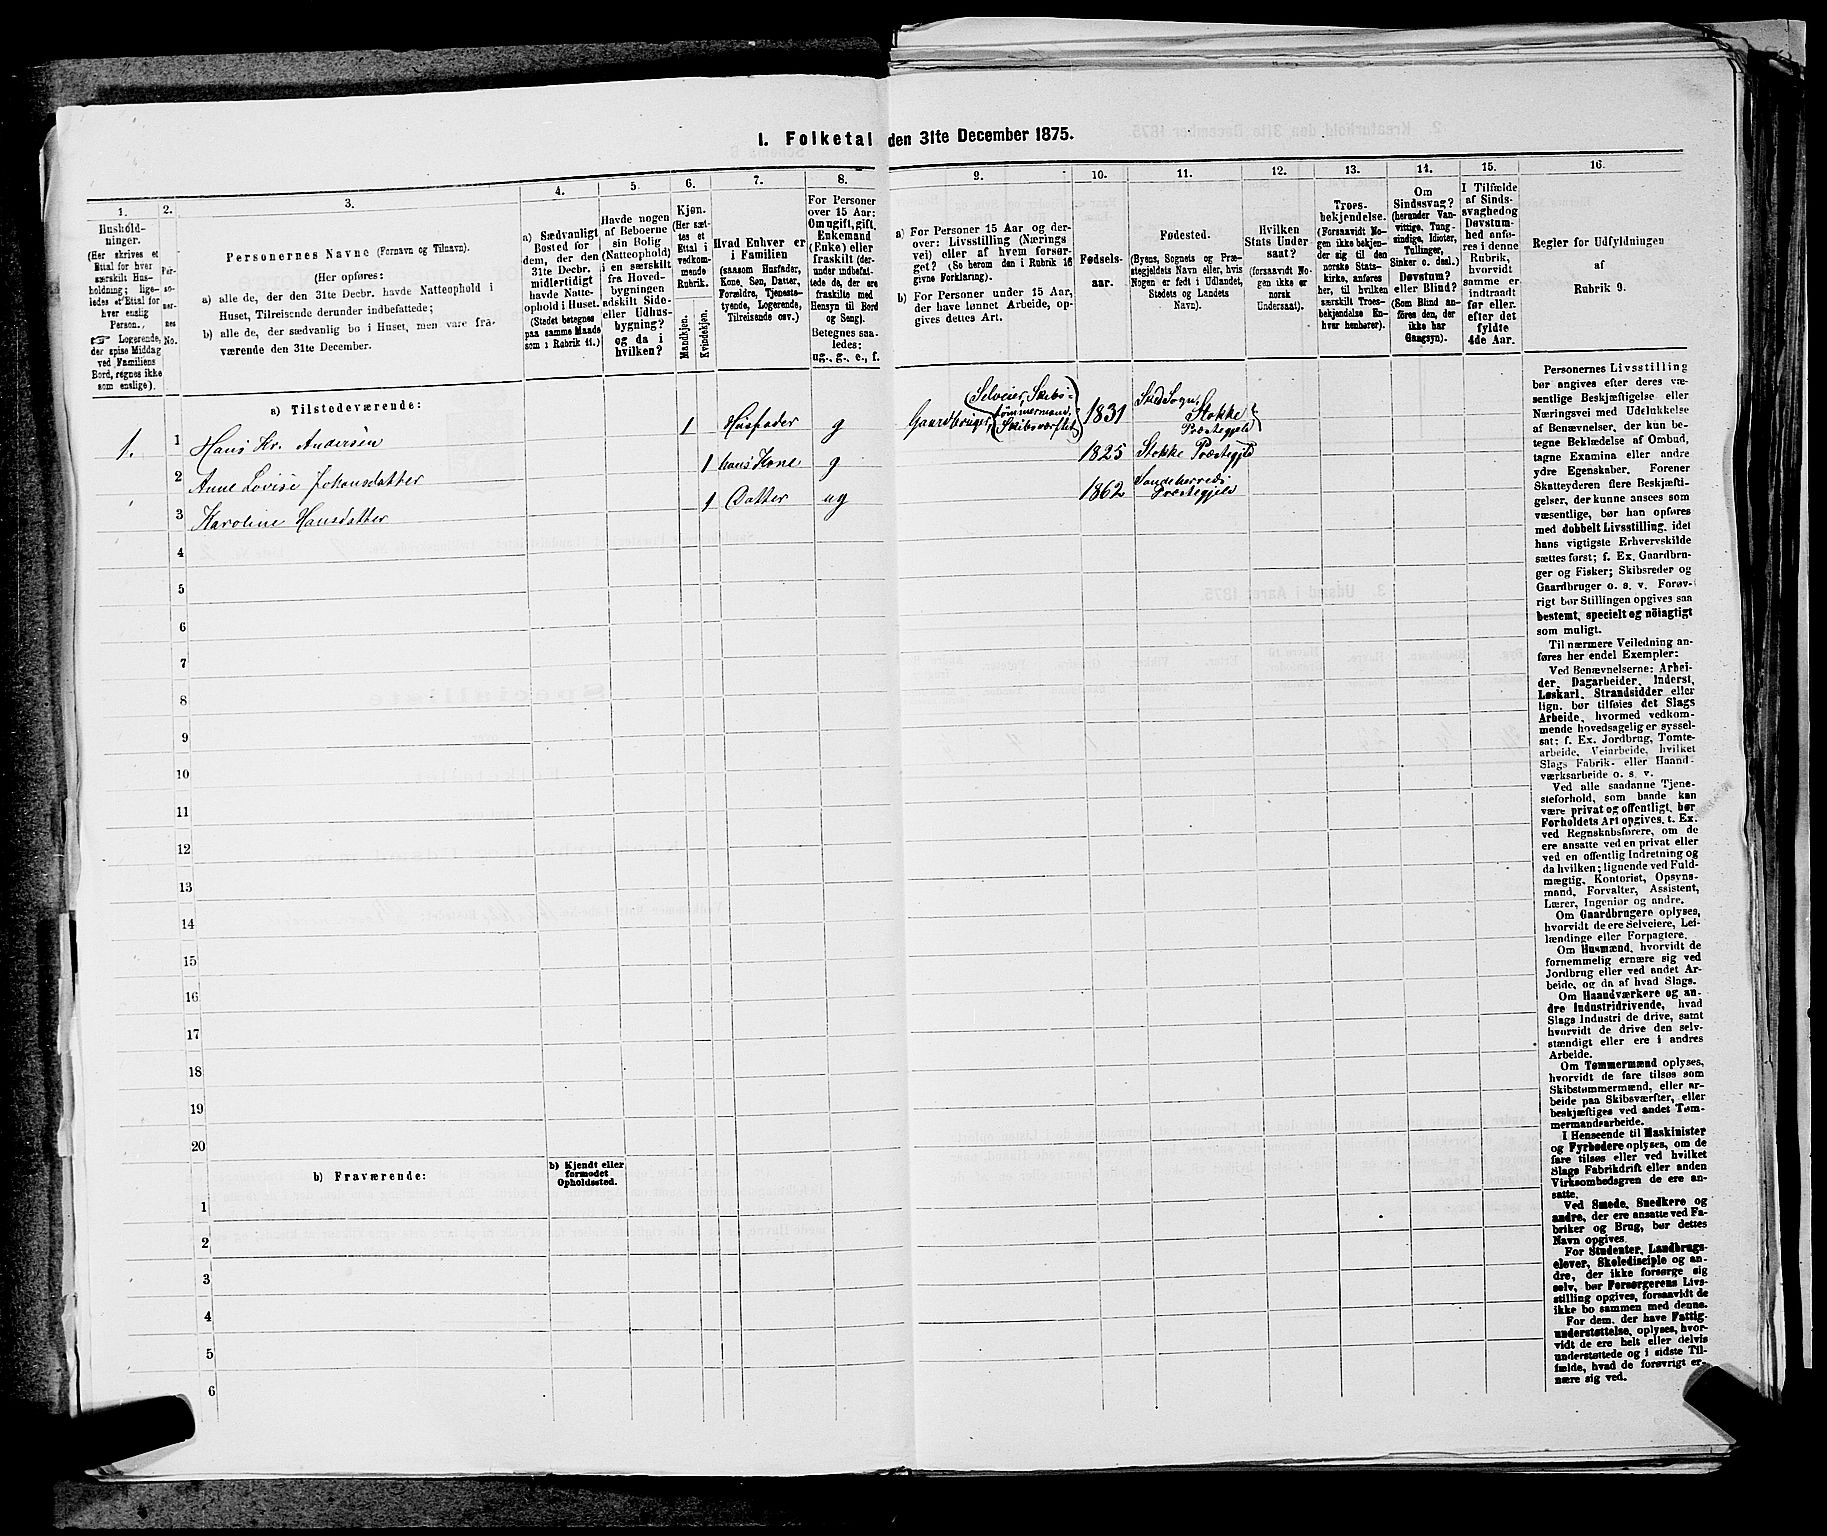 I. Folketal den 31te December 1875.
1.
2.
3.
4.
5.
6.
7.
8.
9.
10.
11.
12.
13.
14.
15.
16.
Hushold-
ninger.
(Her skrives et
Ettal for hver
særskilt Hus-
holdning; lige-
ledes et Ettal for
hver enslig
Person.
☞ Logerende,
der spise Middag
ved Familiens
Bord, regnes ikke
som enslige).
Per-
so-
ner-
nes
No.
Personernes Navne (Fornavn og Tilnavn).
(Her opføres:
a) alle de, der den 31te Decbr. havde Natteophold i
Huset, Tilreisende derunder indbefattede;
b) alle de, der sædvanlig bo i Huset, men vare fra-
værende den 31te December.
a) Sædvanligt
Bosted for
dem, der den
31te Decbr.
midlertidigt
havde Natte-
ophold i Huset.
(Stedet betegnes
paa samme Maade
som i Rubrik 11.)
Havde nogen
af Beboerne
sin Bolig
(Natteophold)
i en særskilt
fra Hoved-
bygningen
adskilt Side-
eller Udhus-
bygning?
og da i
hvilken?
Kjøn.
(Her sæt-
tes et
Ettal i
vedkom-
mende
Rubrik.
Mandkjøn.
Kvindekjøn.
Hvad Enhver er
i Familien
(saasom Husfader,
Kone, Søn, Datter,
Forældre, Tjeneste-
tyende, Logerende,
Tilreisende osv.)
For Personer
over 15 Aar:
Om ugift, gift,
Enkemand
(Enke) eller
fraskilt (der-
under indbefat-
tede de, der ere
fraskilte med
Hensyn til Bord
og Seng).
Betegnes saa-
ledes:
ug., g., e., f.
a) For Personer 15 Aar og der-
over: Livsstilling (Nærings
vei) eller af hvem forsør-
get? (So herom den i Rubrik 16
givne Forklaring).
b) For Personer under 15 Aar,
der have lønnet Arbeide, op-
gives dettes Art.
Fødsels-
aar.
Fødested.
(Byens, Sognets og Præ-
stegjeldets Navn eller, hvis
Nogen er født i Udlandet,
Stedets og Landets
Navn).
Hvilken
Stats Under-
saat?
(forsaavidt No-
gen ikke er
norsk
Undersaat).
Troes-
bekjendelse.
(Forsaavidt No-
gen ikke bekjen-
der sig til den
norske Stats-
kirke, anføres
her, til hvilken
særskilt Troes-
bekjendelse En-
hver henhører).
Om
Sindssvag?
(herunder Van-
vittige, Tung-
sindige, Idioter,
Tullinger,
Sinker o. desl.)
Døvstum?
eller Blind?
(Som Blind an-
føres den, der
ikke har
Gangsyn).
I Tilfælde
af Sinds-
svaghed og
Døvstum-
hed anfø-
res i denne
Rubrik,
hvorvidt
samme er
indtraadt
før eller
efter det
fyldte
4de Aar.
Regler for Udfyldningen
af
Rubrik 9.
a) Tilstedeværende:
1. 1 Hans Kr. Andersen 1 Husfader g Gaardbruger, (Selveier, Skibs-
tømmermand, Skibsværftet) 1831 Sked Sogn, Stokke
Præstegjeld
2 Anne Lovise Johansdatter 1 hans Kone g 1825 Stokke Præstegjeld
3 Karoline Hansdatter 1 Datter ug 1862 Sandeherreds
Præstegjeld
4
5
6
7
8
9
10
11
12
13
14
15
16
17
18
19
20
b) Fraværende:
b) Kjendt eller
formodet
Opholdssted.
1
2
3
4
5
6
Personernes Livsstilling
bør angives efter deres væ-
sentlige Beskjæftigelse eller
Næringsvei med Udelukkelse
af Benævnelser, der kun be-
tegne Beklædelse af Ombud,
tagne Examina eller andre
ydre Egenskaber. Forener
Skatteyderen flere Beskjæfti-
gelser, der kunne ansees som
væsentlige, bør han opføres
med dobbelt Livsstilling, idet
hans vigtigste Erhvervskilde
sættes først; f. Ex. Gaardbru-
ger og Fisker; Skibsreder og
Gaardbruger o. s. v. Forøv-
rigt bør Stillingen opgives saa
bestemt, specielt og nöiagtigt
som muligt.
Til nærmere Veiledning an-
føres her endel Exempler:
Ved Benævnelserne: Arbei-
der, Dagarbeider, Inderst,
Løskarl, Strandsidder eller
lign. bør tilføies det Slags
Arbeide, hvormed vedkom-
mende hovedsagelig er syssel-
sat; f. Ex. Jordbrug, Tomte-
arbeide, Veiarbeide, hvilket
Slags Fabrik- eller Haand-
værksarbeide o. s. v.
Ved alle saadanne Tjene-
steforhold, som baade kan
være privat og offentligt, bør
Forholdets Art opgives, t. Ex.
ved Regnskabsførere, om de
ere ansatte ved en privat eller
ved en offentlig Indretning og
da hvilken; lignende ved Fuld-
mægtig, Kontorist, Opsyns-
mand, Forvalter, Assistent,
Lærer, Ingeniør og andre.
Om Gaardbrugere oplyses,
hvorvidt de ere Selveiere, Lei-
lændinge eller Forpagtere.
Om Husmænd, hvorvidt de
fornemmelig ernære sig ved
Jordbrug eller ved andet Ar-
beide, og da af hvad Slags.
Om Haandværkere og an-
dre Industridrivende, hvad
Slags Industri de drive, samt
hvorvidt de drive den selv-
stændigt eller ere i andres
Arbeide.
Om Tømmermænd oplyses,
hvorvidt de fare tilsøs som
Skibstømmermænd, eller ar-
beide paa Skibsværfter, eller
beskjæftiges ved andet Tøm-
mermandsarbeide.
I Henseende til Maskinister
og Fyrbødere oplyses, om de
fare tilsøs eller ved hvilket
Slags Fabrikdrift eller anden
Virksomhedsgren de ere an-
satte.
Ved Smede, Snedkere og
andre, der ere ansatte ved Fa-
briker og Brug, bør dettes
Navn opgives.
For Studenter, Landbrugs-
elever, Skoledisciple og an-
dre, der ikke forsørge sig
selv, bør Forsørgerens Livs-
stilling opgives, forsaavidt de
ikke bo sammen med denne.
For dem, der have Fattig-
understøttelse, oplyses, hvor-
vidt de ere helt eller delvis
understøttede og i sidste Til-
fælde, hvad de forøvrigt er-
nære sig ved.